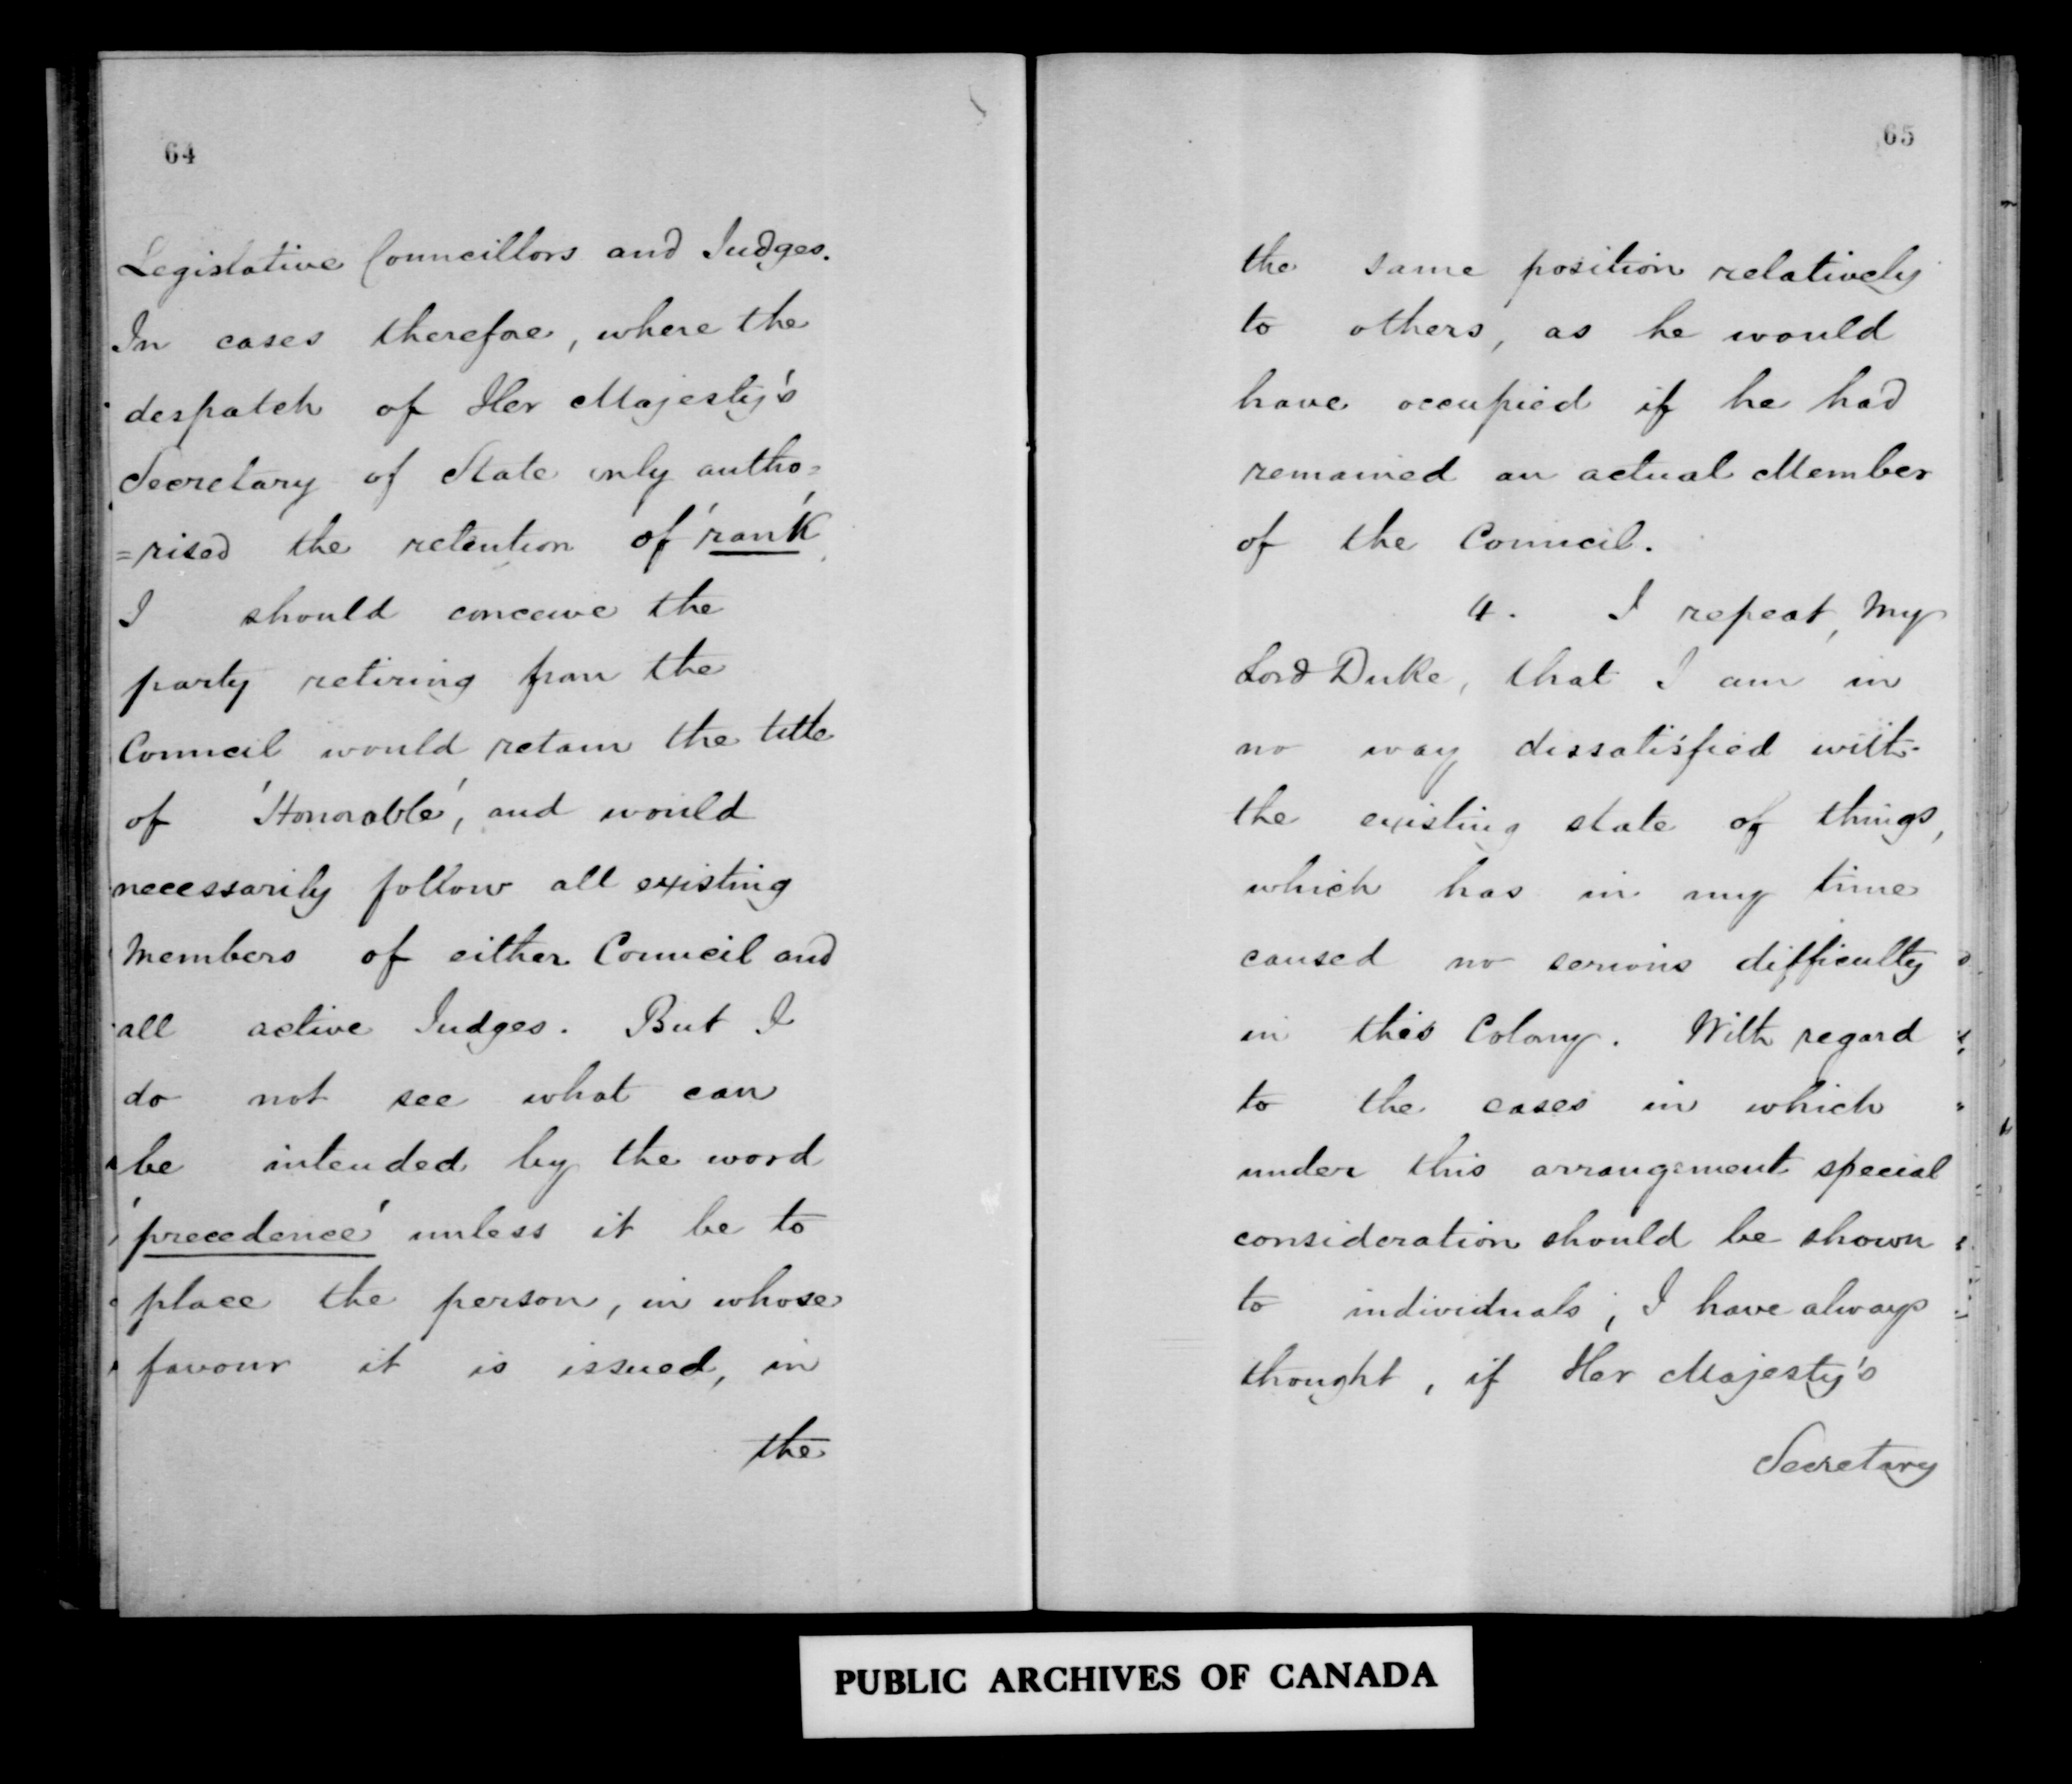 64
Legislative Councillors and Judges.
In cases therefore, where the
despatch of Her Majesty's
Secretary of State only autho=
=rised the retention of 'rank'
I should conceive the
party retiring from the
Council would retain the title
of 'Honorable', and would
necessarily follow all existing
Members of either Council and
all active Judges. But I
do not see what can
be intended by the word
'precedence' unless it be to
place the person, in whose
favour it is issued, in
the
65
the same position relatively
to others, as he would
have occupied if he had
remained an actual Member
of the Council.
4. I repeat, My
Lord Duke, that I am in
no way dissatisfied with
the existing state of things,
which has in my time
caused no serious difficulty
in this Colony. With regard
to the cases in which
under this arrangement special
consideration should be shown
to individuals, I have always
thought, if Her Majesty's
Secretary
PUBLIC ARCHIVES OF CANADA